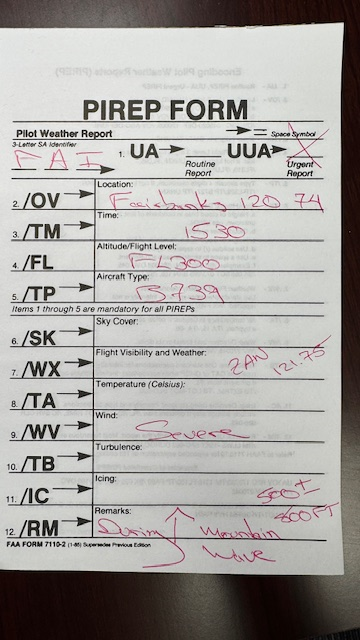 PIREP FORM
Pilot Weather Report
→ = Space Symbol
3-Letter SA Identifier
FAI
1. UA → UUA →
Routine Report
Urgent Report
2. /OV → Location:
Fairbanks 120 74
3. /TM → Time:
1530
4. /FL → Altitude/Flight Level:
FL300
5. /TP → Aircraft Type:
B739
Items 1 through 5 are mandatory for all PIREPs
6. /SK → Sky Cover:
7. /WX → Flight Visibility and Weather:
ZAN 121.75
8. /TA → Temperature (Celsius):
9. /WV → Wind:
Severe
10. /TB → Turbulence:
11. /IC → Icing:
500 ±
800 FT
12. /RM → Remarks:
During Mountain
Wave
FAA FORM 7110-2 (1-85) Supersedes Previous Edition